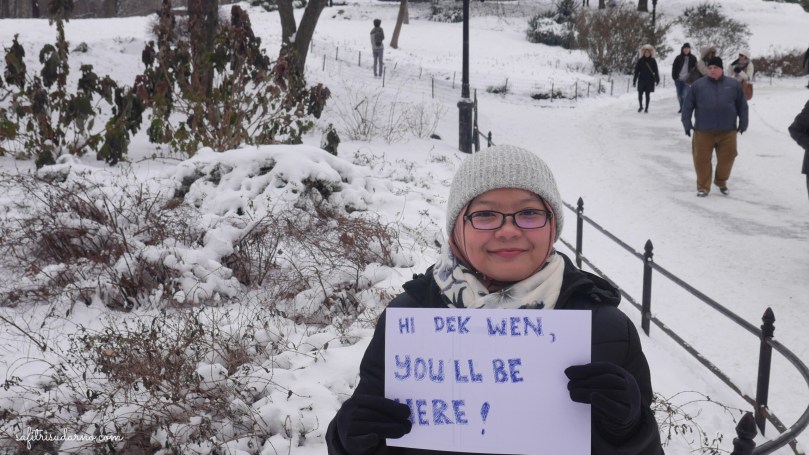 HI DEK WEN,
YOU'LL BE
HERE !
safitrisudarno.com